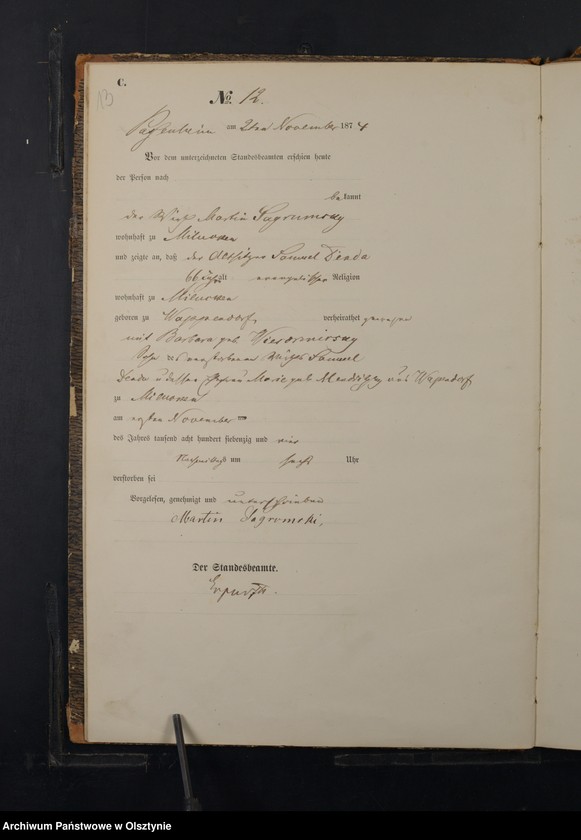 C.
13
№. 12.
am 2ten November 1874
Vor dem unterzeichneten Standesbeamten erschien heute
der Person nach
bekannt
der Wirth Martin Sagrumsky
wohnhaft zu Milucken
und zeigte an, daß der Altsitzer Samuel
66 Jahr alt evangelischer Religion
wohnhaft zu Milucken
geboren zu verheirathet gewesen
mit Barbara geb.
Sohn des verstorbenen Wirths Samuel
Marie geb.
zu
am November
des Jahres tausend acht hundert siebenzig und vier
Nachmittags um sechs Uhr
verstorben sei
Vorgelesen, genehmigt und unterschrieben
Martin Sagromski.
Der Standesbeamte.
Archiwum Państwowe w Olsztynie